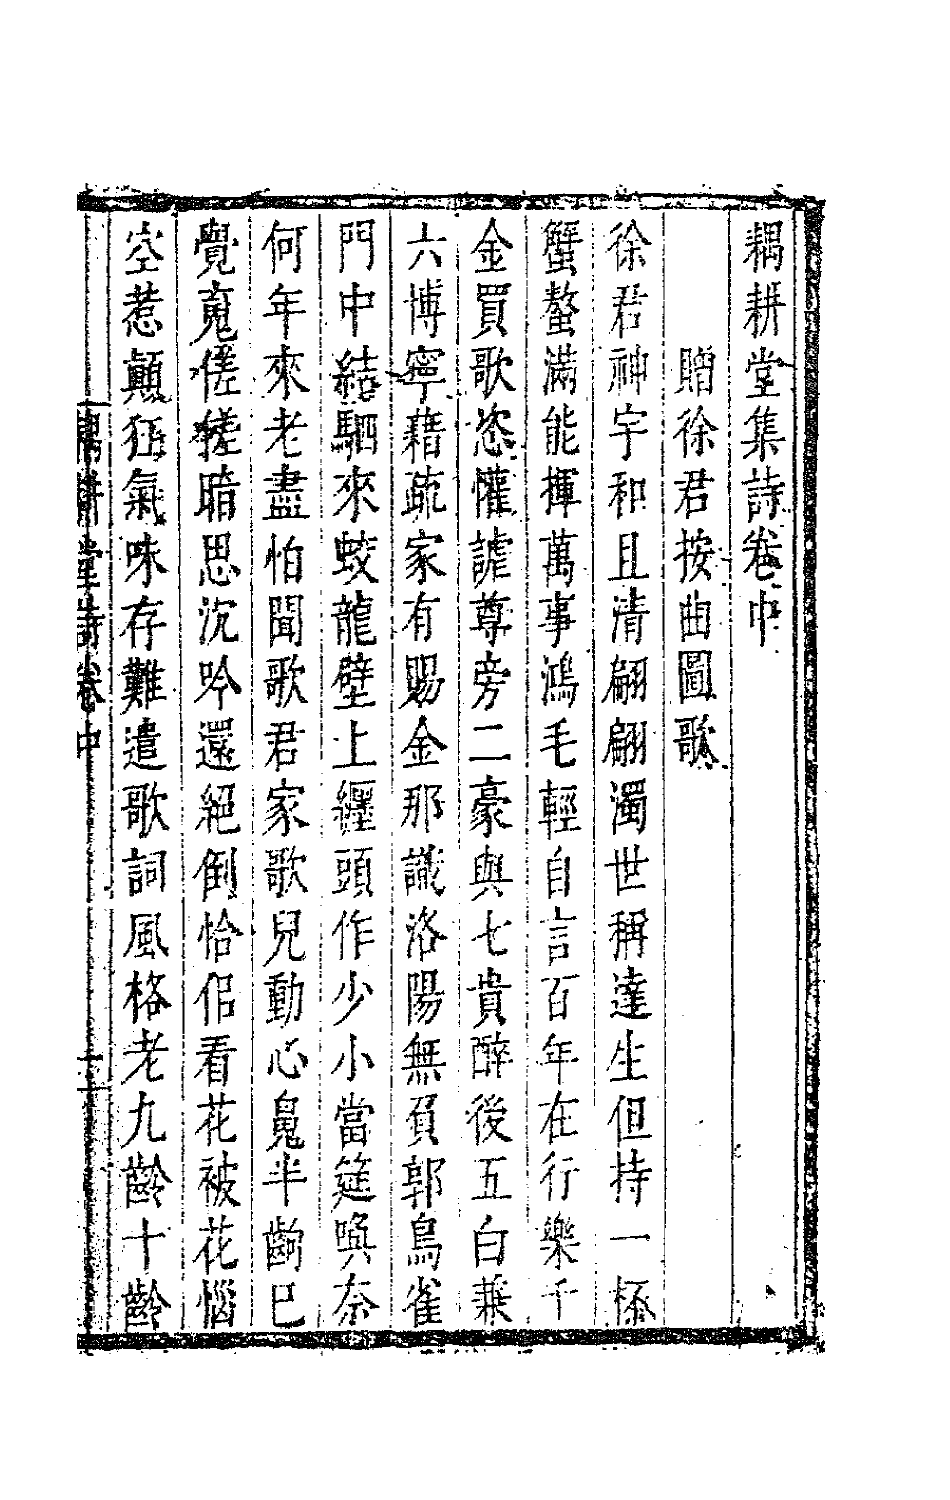 耦耕堂集詩卷中
贈徐君按曲圖歌
徐君神宇和且清翩翩濁世稱達生但持一桮
蟹螯滿能揮萬事鴻毛輕自言百年在行樂千
金買歌恣懽謔尊旁二豪與七貴醉後五白兼
六博寧藉疏家有賜金那識洛陽無負郭鳥雀
門中結駟來蛟龍壁上纏頭作少小當筵喚奈
何年來老盡怕聞歌君家歌兒動心魂半齒巳
覺寬傞傞暗思沉吟還絕倒恰侶看花被花惱
空惹顚狂氣味存難遣歌詞風格老九齡十齡
耦耕堂詩卷中